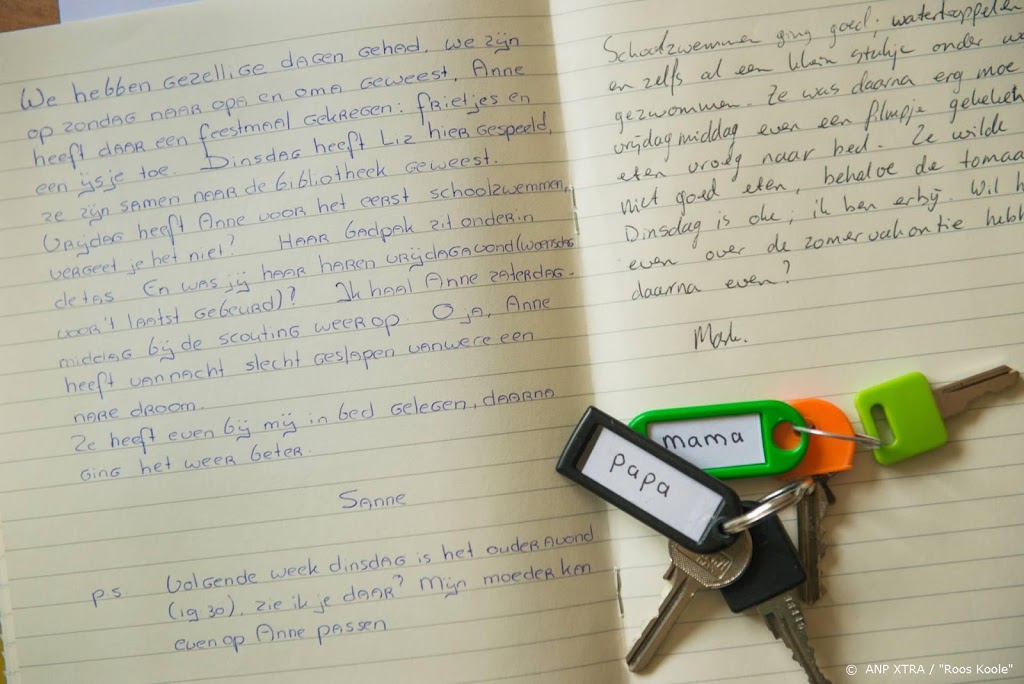 We hebben gezellige dagen gehad. We zijn
op zondag naar opa en oma geweest, Anne
heeft daar een feestmaal gekregen: frietjes en
een ijsje toe. Dinsdag heeft Liz hier gespeeld,
ze zijn samen naar de bibliotheek geweest.
Vrijdag heeft Anne voor het eerst schoolzwemmen,
vergeet je het niet? Haar badpak zit onderin
de tas En was jij haar haren vrijdagavond (woensdag
voor't laatst gebeurd)? Ik haal Anne zaterdag-
middag bij de scouting weer op. O ja, Anne
heeft vannacht slecht geslapen vanwege een
nare droom.
Ze heeft even bij mij in bed gelegen, daarna
ging het weer beter.
Sanne
p.s. Volgende week dinsdag is het ouderavond
(19.30), zie ik je daar? Mijn moeder kan
even op Anne passen
Schoolzwemmen ging goed; watertrappelen
en zelfs al een klein stukje onder wa
gezwommen. Ze was daarna erg moe
vrijdagmiddag even een filmpje gekeken
eten vroeg naar bed. Ze wilde
niet goed eten, behalve de tomaa
Dinsdag is oke; ik ben erbij. Wil h
even over de zomervakantie hebb
daarna even?
Mark.
mama
papa
© ANP XTRA / "Roos Koole"